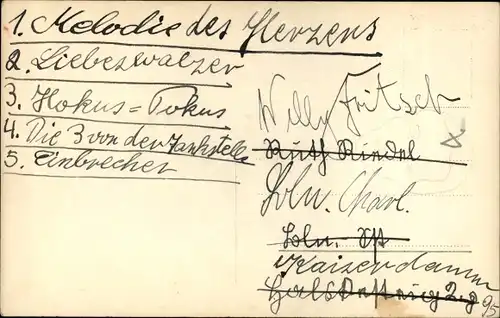 1. Melodie des Herzens
2. Liebeswalzer
3. Hokus = Pokus
4. Die 3 von der Tankstelle
5. Einbrecher
Willy Fritsch
Ruth Riedel
Bln. Charl.
Bln.
Kaiserdamm
95